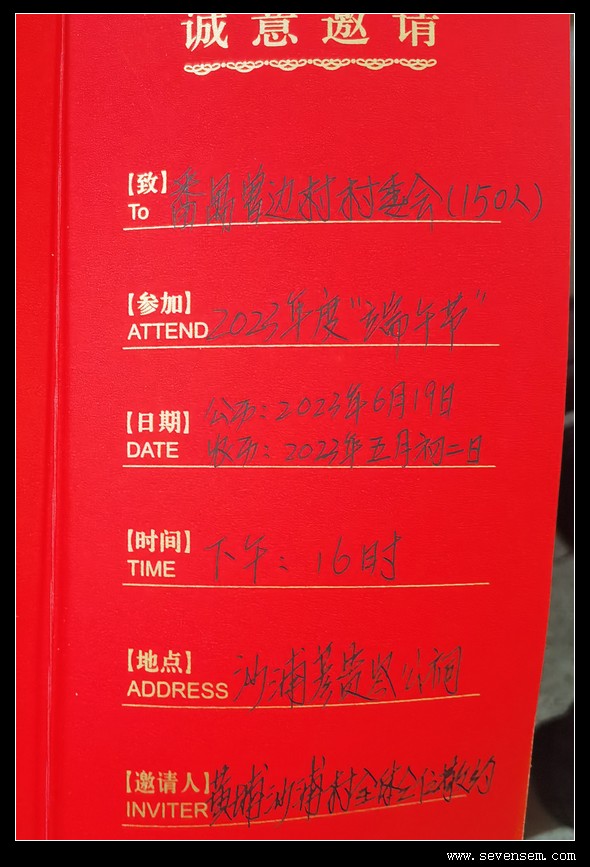 诚意邀请
【致】番禺曾边村村委会(150人)
To
【参加】2023年度“端午节”
ATTEND
【日期】公历：2023年6月19日
DATE 农历：2023年五月初二日
【时间】下午：16时
TIME
【地点】汕浦 贵 公祠
ADDRESS
【邀请人】黄埔 浦村全体 敬约
INVITER
www.sevensem.com